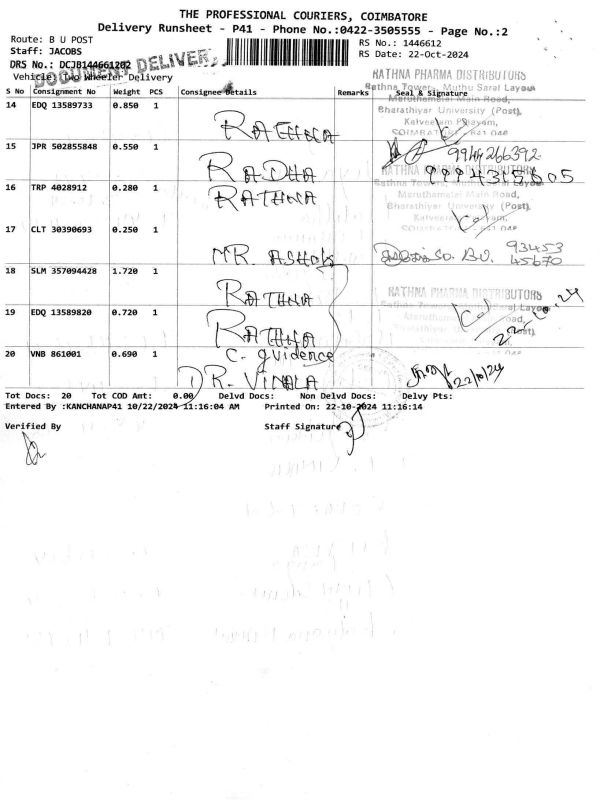 THE PROFESSIONAL COURIERS, COIMBATORE
Delivery Runsheet - P41 - Phone No.:0422-3505555 - Page No.:2
Route: B U POST
RS No.: 1446612
Staff: JACOBS
RS Date: 22-Oct-2024
DRS No.: DCJB144661202
DOCUMENT DELIVERY
Vehicle: Two Wheeler Delivery
RATHNA PHARMA DISTRIBUTORS
Rathna Towers, Muthu Saral Layout
S No Consignment No Weight PCS Consignee Details Remarks Seal & Signature
Maruthamalai Main Road,
14 EDQ 13589733 0.850 1 RATHNA
Bharathiyar University (Post),
Kalveeram Palayam,
15 JPR 502855848 0.550 1 RADHA
RATHNA PHARMA DISTRIBUTORS
16 TRP 4028912 0.280 1 RATHNA
Maruthamalai Main Road,
Bharathiyar University (Post),
17 CLT 30390693 0.250 1 MR. ASHOK
93453
45670
18 SLM 357094428 1.720 1 RATHNA
RATHNA PHARMA DISTRIBUTORS
19 EDQ 13589820 0.720 1 RATHNA
22.10.24
20 VNB 861001 0.690 1 C. guidence
DR. VIMALA 22/10/24
Tot Docs: 20 Tot COD Amt: 0.00 Delvd Docs: Non Delvd Docs: Delvy Pts:
Entered By :KANCHANAP41 10/22/2024 11:16:04 AM Printed On: 22-10-2024 11:16:14
Verified By Staff Signature